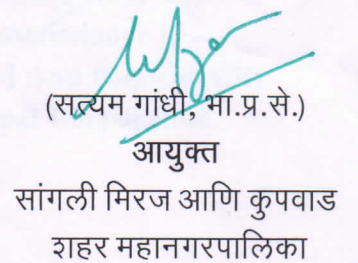 (सत्यम गांधी, भा.प्र.से.)
आयुक्त
सांगली मिरज आणि कुपवाड
शहर महानगरपालिका